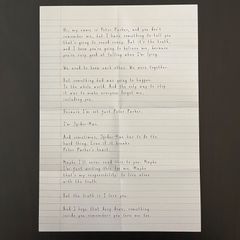 Hi, my name is Peter Parker, and you don't
remember me, but I have something to tell you
that's going to sound crazy. But it's the truth,
and I know you're going to believe me, because
you're very good at telling when I'm lying.
We used to know each other. We were together.
But something bad was going to happen.
To the whole world. And the only way to stop
it was to make everyone forget me.
Including you.
Because I'm not just Peter Parker.
I'm Spider-Man.
And sometimes, Spider-Man has to do the
hard thing. Even if it breaks
Peter Parker's heart.
Maybe I'll never read this to you. Maybe
I'm just writing this for me. Maybe
that's my responsibility: to live alone
with the truth.
But the truth is I love you.
And I hope that deep down, something
inside you remembers you love me too.